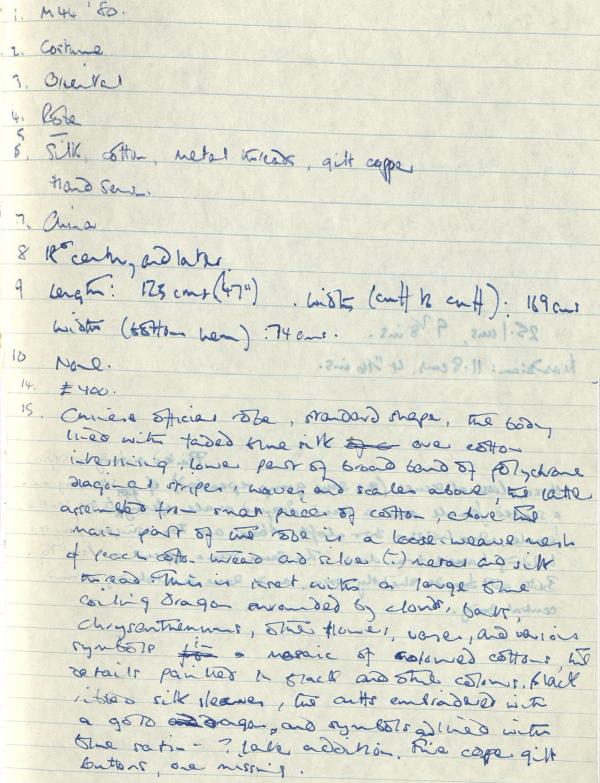 1. M44 '80.
2. Costume
3. Oriental
4. Robe
5 —
6. Silk, cotton, metal threads, gilt copper
Hand sewn.
7. China
8 18th century and later.
9 Length: 123 cms (47"). Width (cuff to cuff): 169 cms
Width (bottom hem): 74 cms.
10 None.
14. £400.
15. Chinese official robe, standard shape, the body
lined with faded blue silk over cotton
interlining, lower part of broad band of polychrome
diagonal stripes, waves and scales above, the latter
assembled from small pieces of cotton, above the
main part of the robe is a loose weave mesh
of peach cotton thread and silver (?) metal and silk
thread. This is inset with a large blue
coiling dragon surrounded by clouds, bats,
chrysanthemums, other flowers, vases, and various
symbols in a mosaic of coloured cottons, the
details painted in black and other colours. Black
ribbed silk sleeves, the cuffs embroidered with
a gold dragon, and symbols and lined with
blue satin - ? later addition. Five copper gilt
buttons, one missing.